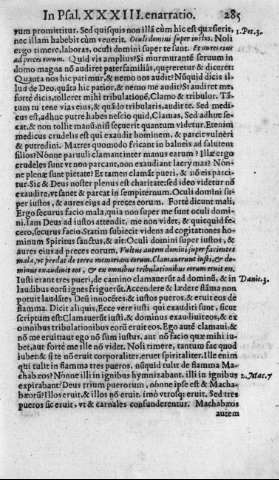 In Psal. XXXIII. enarratio. 285
rum promittitur. Sed quisquis non illā cùm hic est quæsierit,
nec illam habebit cùm venerit. Oculi domini super iustos. Noli 1.Pet.3.
ergo timere, labora, oculi domini super te sunt. Et aures eius
ad preces eorum. Quid vis amplius? Si murmurantē seruum in
domo magna nō audiret paterfamiliâs, quereretur & diceret
Quanta nos hic patimur, & nemo nos audit? Nūquid dicis il-
lud de Deo, quāta hîc patior, & nemo me audit? Si audiret me,
fortè dicis, tolleret mihi tribulationē. Clamo & tribulor. Tā-
tum tu tene vias eius, & quādo tribularis, audit te. Sed medi-
cus est, adhuc putre habes nescio quid, Clamas, sed adhuc se-
cat, & non tollit manū, nisi secuerit quantum videtur. Etenim
medicus crudelis est qui exaudit hominem, & parcit vulneri
& putredini. Matres quomodo fricant in balneis ad salutem
filios? Nōnne paruuli clamant inter manus earum? Illæ ergo
crudeles sunt vt non parcant, non exaudiant lacrymas? Non-
ne plenæ sunt pietate? Et tamen clamāt pueri, & nō eis parci-
tur. Sic & Deus noster plenus est charitate: sed ideo videtur nō
exaudire, vt sanet & parcat in sempiternum. Oculi domini su-
per iustos, & aures eius ad preces eorum. Fortè dicunt mali,
Ergo securus facio mala, quia non super me sunt oculi domi-
ni. Iam Deus ad iustos attendit, me non videt, & quicquid fe-
cero, securus facio. Statim subiecit videns ad cogitationes ho-
minum Spiritus sanctus, & ait. Oculi domini super iustos, &
aures eius ad preces eorum. Vultus autem domini super facientes
mala, vt perdat de terra memoriam eorum. Clamauerunt iusti, & do-
minus exaudiuit eos, & ex omnibus tribulationibus eorum eruit eos.
Iusti erant tres pueri, de camino clamauerūt ad dominū, & in Danie.3.
laudibus eorū ignes friguerūt. Accedere & lædere flāma non
potuit laudātes Deū innocētes, & iustos pueros, & eruit eos de
flamma. Dicit aliquis, Ecce verè iusti qui exauditi sunt, sicut
scriptum est: Clamauerūt iusti, & dominus exaudiuit eos, & ex
omnibus tribulationibus eorū eruit eos. Ego autē clamaui, &
nō me eruit: aut ego nō sum iustus, aut nō facio quæ mihi iu-
bet, aut fortè me ille nō videt. Noli timere, tantum fac quod
iubet, & si te nō eruit corporaliter, eruet spiritaliter. Ille enim
qui tulit in flamma tres pueros, nūquid tulit de flamma Ma-
chabæos? Nonne illi in ignibus hymnizabant, illi in ignibus 2.Mac.7
expirabant? Deus trium puerorum, nónne ipse est & Macha-
bæorū? Illos eruit, & illos nō eruit. imò vtrosq; eruit. Sed tres
pueros sic eruit, vt & carnales confunderentur. Machabæos
autem